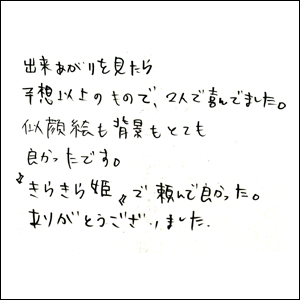 出来あがりを見たら
予想以上のもので、2人で喜んでました。
似顔絵も背景もとても
良かったです。
〝きらきら姫〟で頼んで良かった。
ありがとうございました.